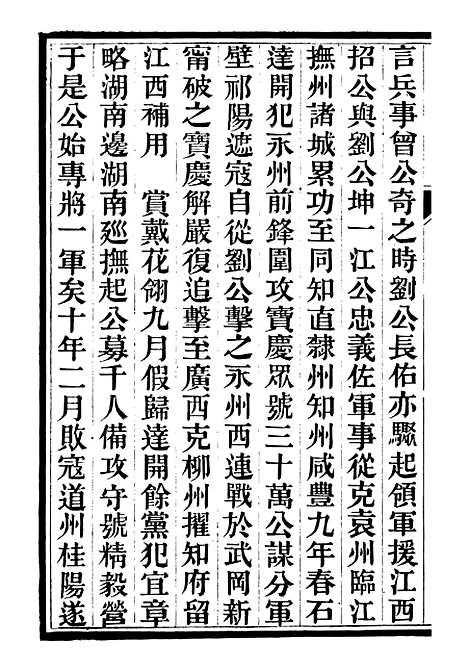 言兵事曾公奇之時劉公長佑亦驟起領軍援江西
招公與劉公坤一江公忠義佐軍事從克袁州臨江
撫州諸城累功至同知直隸州知州咸豐九年春石
達開犯永州前鋒圍攻寶慶眾號三十萬公謀分軍
壁祁陽遮寇自從劉公擊之永州西連戰於武岡新
甯破之寶慶解嚴復追擊至廣西克柳州擢知府留
江西補用　賞戴花翎九月假歸達開餘黨犯宜章
略湖南邊湖南廵撫起公募千人備攻守號精毅營
于是公始專將一軍矣十年二月敗寇道州桂陽遂